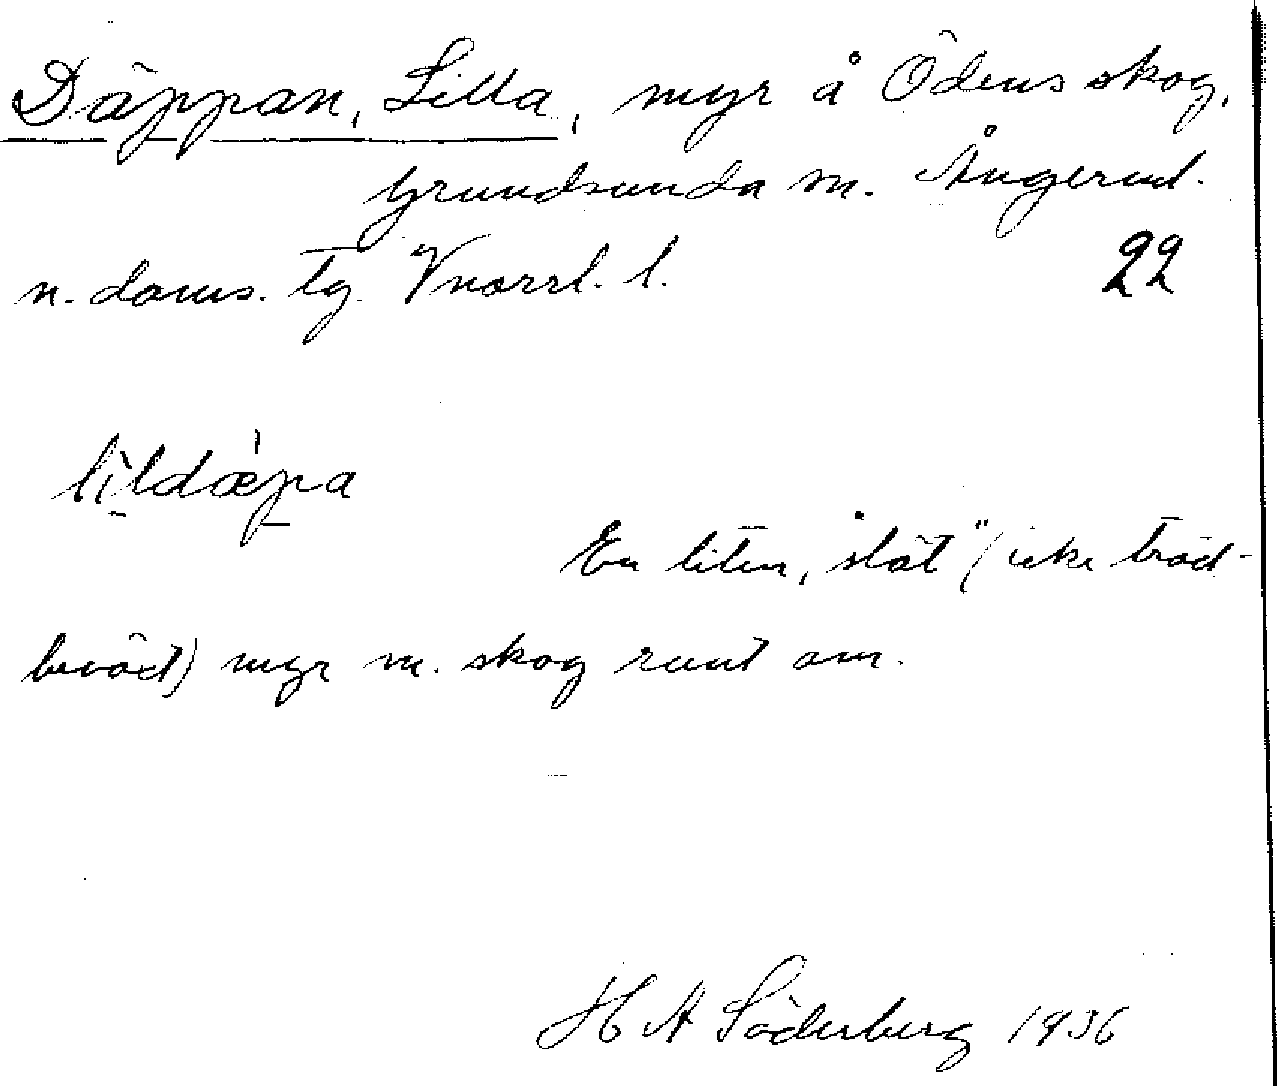 Däppan, Lilla, myr å Ödens skog,
Grundsunda sn. Ångerml.
n. doms. tg. Vnorrl. l. 22
lìldæ̀pa
En liten, "slät" (icke träd-
beväxt) myr m. skog runt om.
H A Söderberg 1936